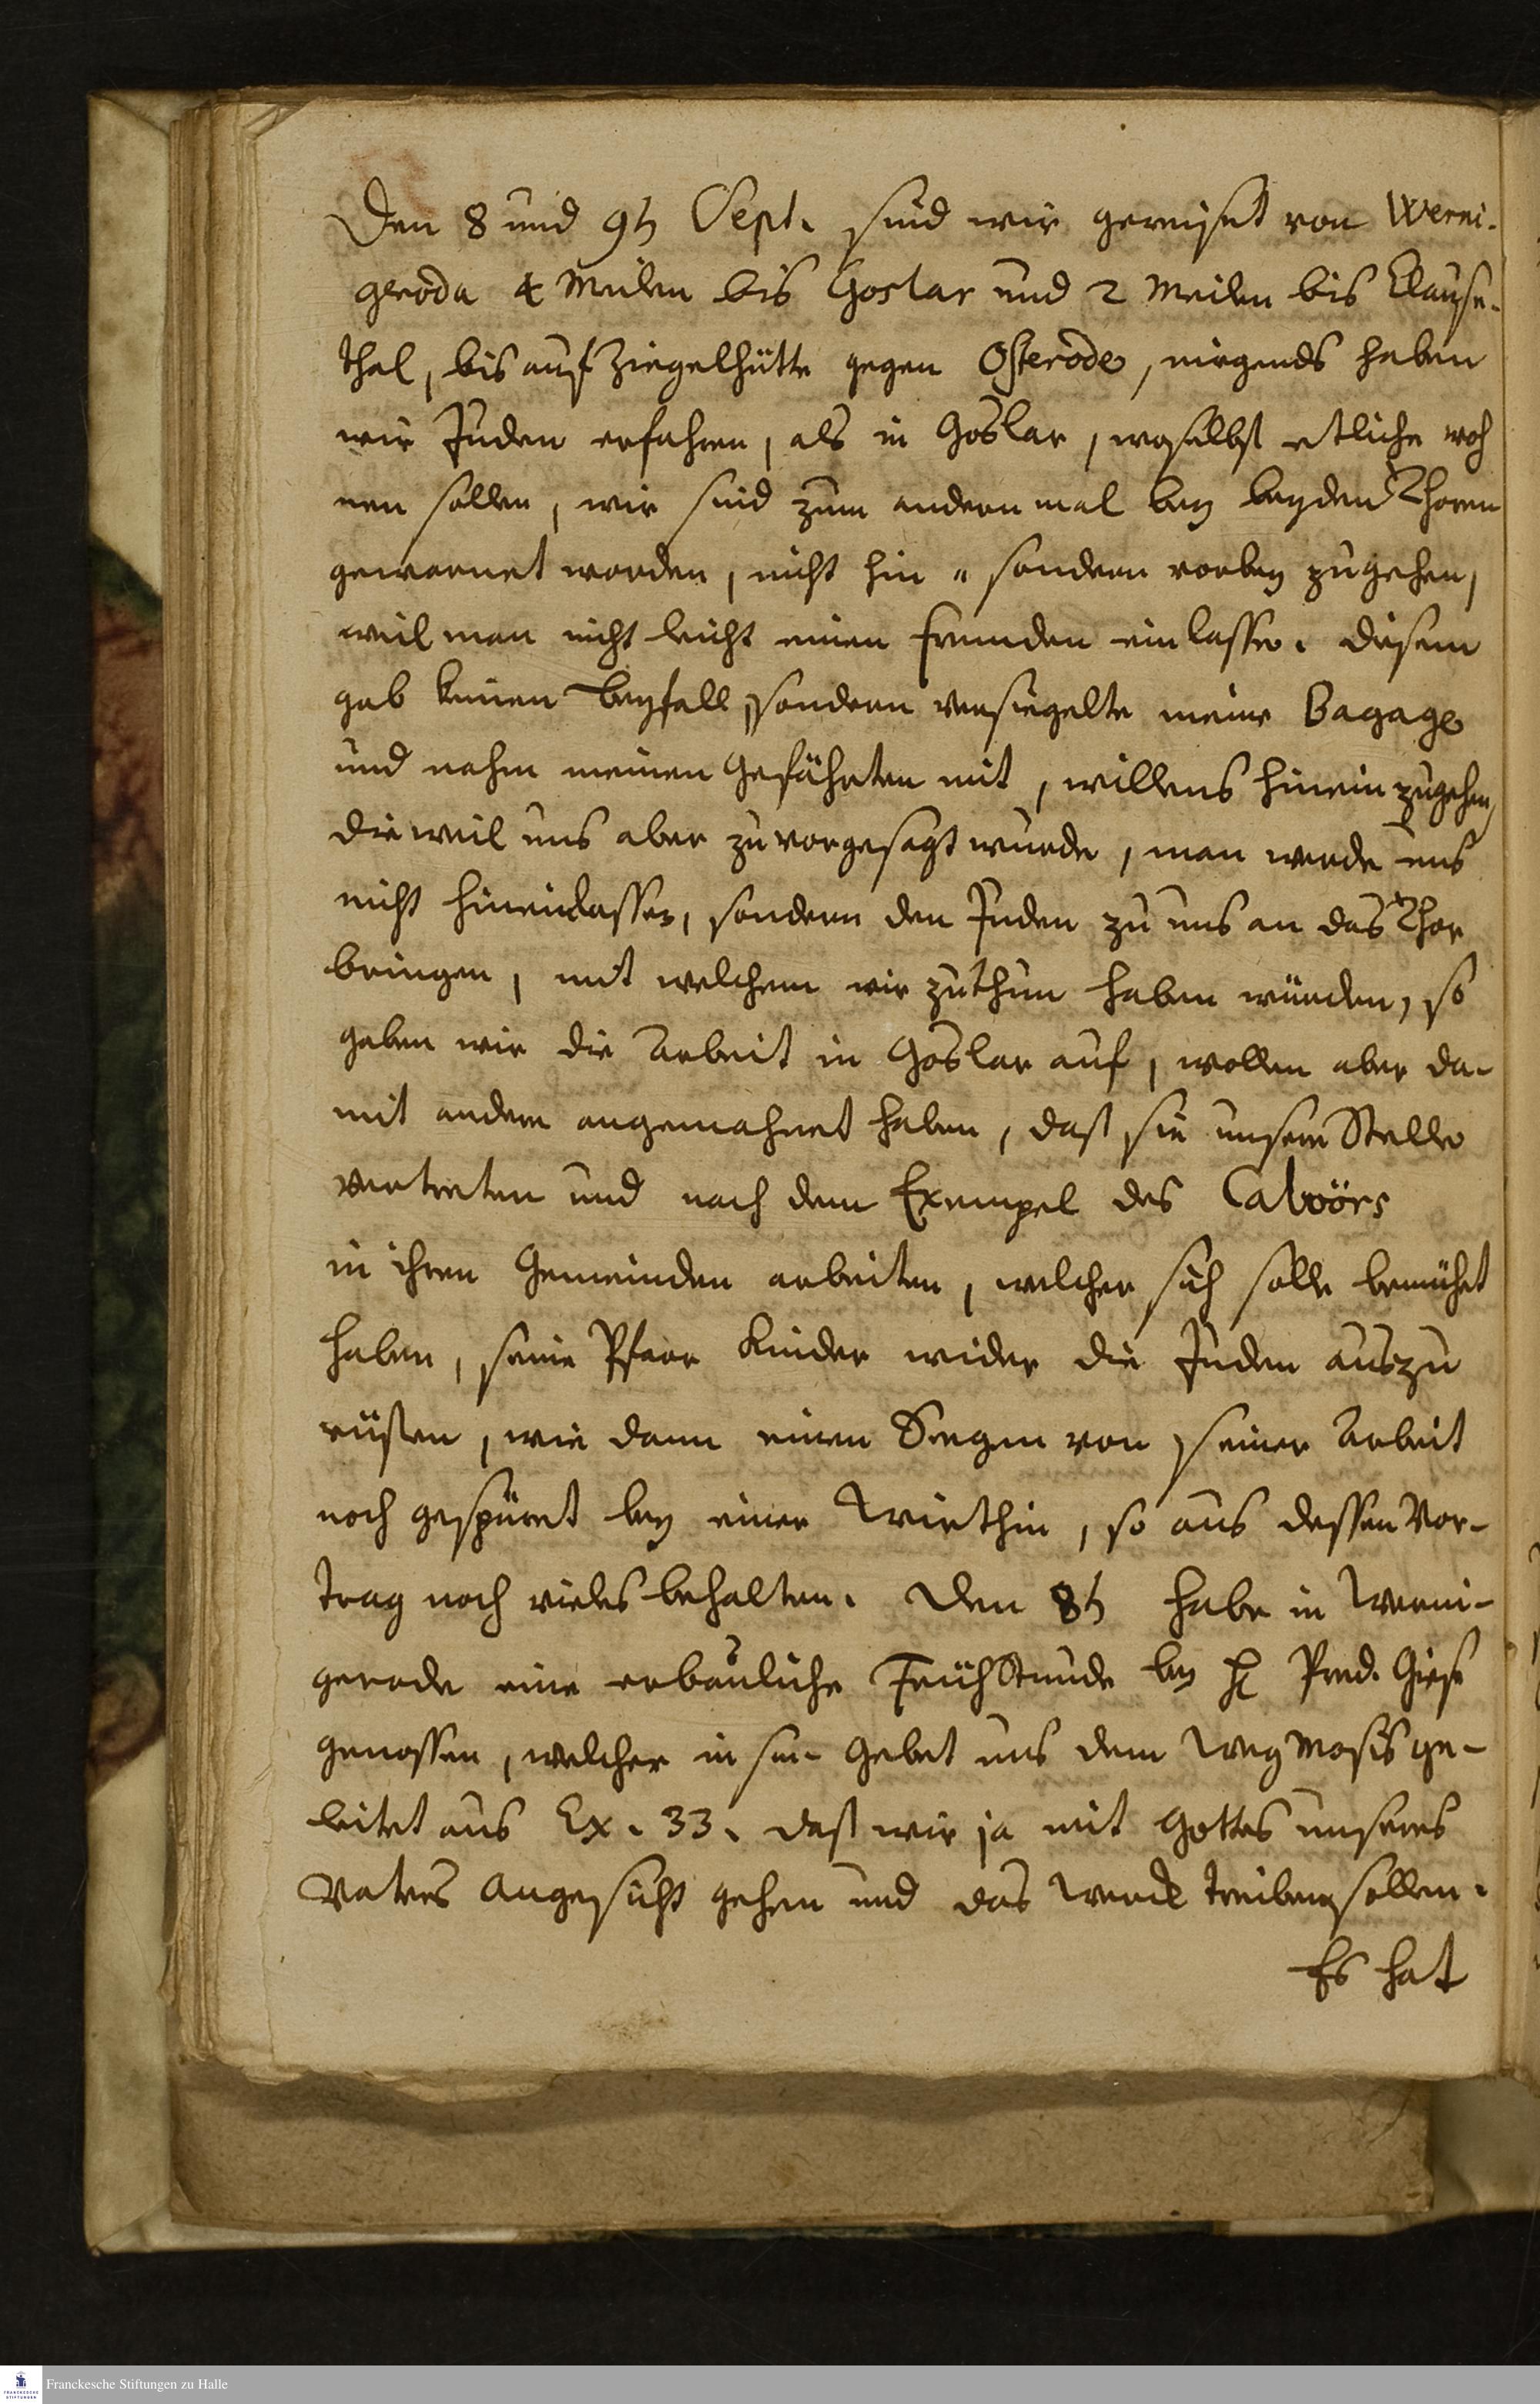 Den 8 und 9t Sept. sind wir gereiset von Werni-
geroda 4 Meilen bis Goslar und 2 Meilen bis Clause-
thal, bis auf Ziegelhütte gegen Osterode, nirgends haben
wir Juden erfahren, als in Goslar, woselbst etliche woh
nen sollen, wir sind zum andern mal bey beyden Thoren
gewarnet worden, nicht hin- sondern vorbey zugehen,
weil man nicht leicht einen fremden einlasse. diesem
gab keinen beyfall, sondern versiegelte meine Bagage
und nahm meinen Gefährten mit, willens hinein zugehen,
dieweil uns aber zuvorgesagt wurde, man werde uns
nicht hineinlassen, sondern den Juden zu uns an das Thor
bringen, mit welchem wir zuthun haben würden, so
gaben wir die Arbeit in Goslar auf, wollen aber da-
mit andere angemahnet haben, daß sie unsere Stelle
vertreten und nach dem Exempel des Calvörs
in ihren Gemeinden arbeiten, welcher sich solle bemühet
haben, seine Pfarr Kinder wider die Juden auszu
rüsten, wie dann einen Segen von seiner Arbeit
noch gespüret bey einer Wirthin, so aus dessen Vor-
trag noch vieles behalten. Den 8t habe in Werni-
gerode eine erbauliche FrühStunde bey H Pred. Giese
genossen, welcher in sein Gebet uns dem Weg Mosis ge-
leitet aus Ex. 33. daß wir ja mit Gottes unseres
Vaters Angesicht gehen und das Werck treiben sollen.
Es hat
Franckesche Stiftungen zu Halle
FRANCKESCHE
STIFTUNGEN